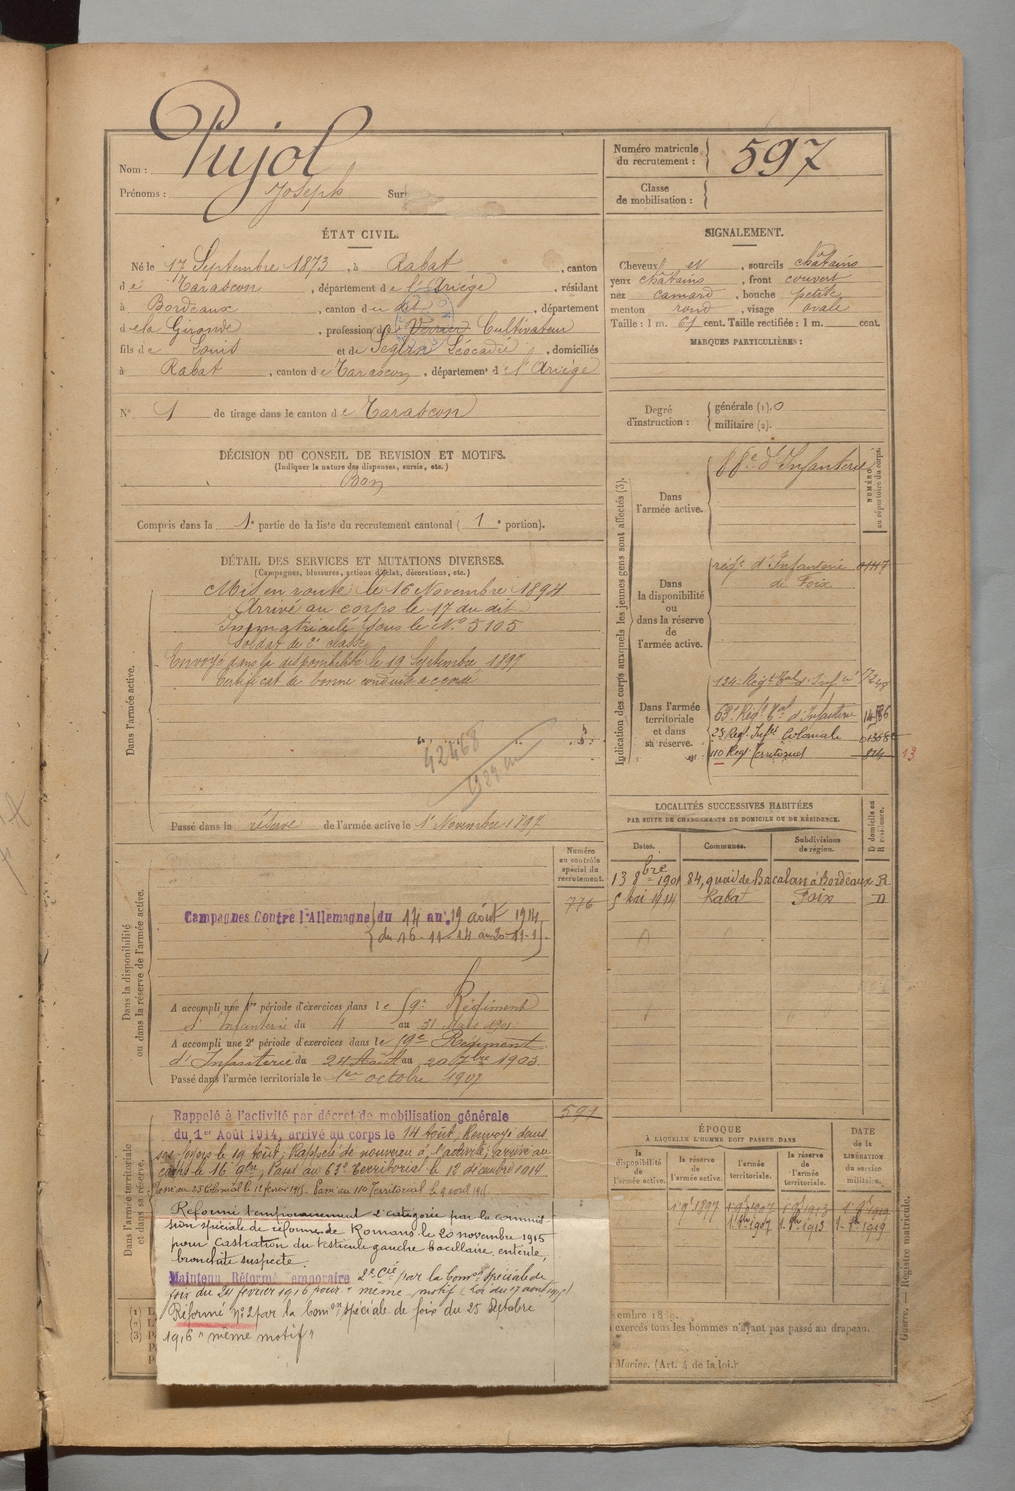 Nom : Pujol
Prénoms : Joseph Sur
Numéro matricule du recrutement : 597
Classe de mobilisation :
ÉTAT CIVIL.
Né le 17 Septembre 1873, à Rabat, canton
de Tarascon, département de l'Ariège, résidant
à Bordeaux, canton du dit, département
de la Gironde, profession de Verrier Cultivateur
fils de Louis et de Léocadie, domiciliés
à Rabat, canton de Tarascon, département de l'Ariège
N° 1 de tirage dans le canton de Tarascon
SIGNALEMENT.
Cheveux et, sourcils châtains
yeux châtains, front couvert
nez camard, bouche petite
menton rond, visage ovale
Taille : 1 m. 61 cent. Taille rectifiée : 1 m. cent.
MARQUES PARTICULIÈRES :
Degré d'instruction : générale (1). 0
militaire (2).
DÉCISION DU CONSEIL DE REVISION ET MOTIFS.
(Indiquer la nature des dispenses, sursis, etc.)
Bon
Compris dans la 1e partie de la liste du recrutement cantonal ( 1e portion).
DÉTAIL DES SERVICES ET MUTATIONS DIVERSES.
(Campagnes, blessures, actions d'éclat, décorations, etc.)
Dans l'armée active.
Mis en route le 16 Novembre 1894
Arrivé au corps le 17 du dit
Immatriculé sous le N° 5105
Soldat de 2e classe
Envoyé dans la disponibilité le 19 Septembre 1897
Certificat de bonne conduite accordé
42468
Passé dans la réserve de l'armée active le 1er Novembre 1897
Indication des corps auxquels les jeunes gens sont affectés (3).
NUMÉRO au répertoire du corps.
Dans l'armée active.
d'Infanterie
Dans la disponibilité ou dans la réserve de l'armée active.
régt d'Infanterie
de Foix
Dans l'armée territoriale et dans sa réserve.
134e Régt tal d'Infie
63e Régt tal d'Infanterie
23 Régt Infie Coloniale
110 Régt Territorial
13
LOCALITÉS SUCCESSIVES HABITÉES
PAR SUITE DE CHANGEMENTS DE DOMICILE OU DE RÉSIDENCE.
Dates. Communes. Subdivisions de région. D domicile ou R résidence.
13 8bre 1901 84, quai de Bacalan à Bordeaux R
5 Mai 1914 Rabat Foix D
Dans la disponibilité ou dans la réserve de l'armée active.
Numéro au contrôle spécial du recrutement.
776
Campagnes Contre l'Allemagne du 14 au 19 août 1914
A accompli une 1re période d'exercices dans le 59e Régiment
d'Infanterie du 4 au 31 Mars 1901
A accompli une 2e période d'exercices dans le 59e Régiment
d'Infanterie du 24 Août au 20 7bre 1903
Passé dans l'armée territoriale le 1er octobre 1907
Dans l'armée territoriale et dans sa réserve.
591
Rappelé à l'activité par décret de mobilisation générale
du 1er Août 1914, arrivé au corps le 14 Août, Renvoyé dans
ses foyers le 19 août, Rappelé de nouveau à l'activité; arrivé au
corps le 16 9bre, Passé au 63e Territorial le 12 décembre 1914
Passé au 23 Colonial le 12 février 1915. Passé au 110 Territorial le 9 août 1915
Réformé temporairement 2e catégorie par la commis-
sion spéciale de réforme de Romans le 20 novembre 1915
pour castration du testicule gauche bacillaire, entérite,
bronchite suspecte.
Maintenu Réformé Temporaire 2e Cie par la Comon spéciale de
foix du 24 février 1916 pour "même motif (Loi du 17 août 1915)
Réformé n° 2 par la Comon spéciale de foix du 25 Septbre
1916 "même motif"
ÉPOQUE
À LAQUELLE L'HOMME DOIT PASSER DANS
la disponibilité de l'armée active.
la réserve de l'armée active.
l'armée territoriale.
la réserve de l'armée territoriale.
DATE de la LIBÉRATION du service militaire.
1 9bre 1897
exercés tous les hommes n'ayant pas passé au drapeau.
Marine. (Art. 4 de la loi.)
Guerre. — Registre matricule.